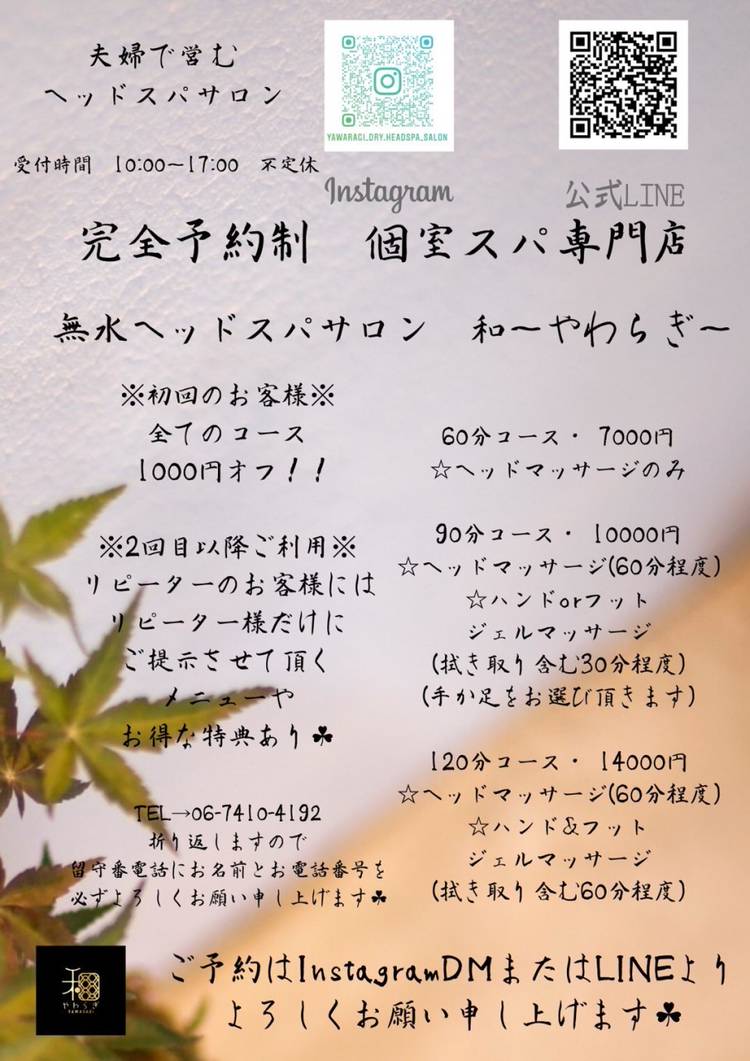 夫婦で営む
ヘッドスパサロン
受付時間 10:00〜17:00 不定休
YAWARAGI_DRY.HEADSPA_SALON
Instagram
公式LINE
完全予約制 個室スパ専門店
無水ヘッドスパサロン 和〜やわらぎ〜
※初回のお客様※
全てのコース
1000円オフ！！
※2回目以降ご利用※
リピーターのお客様には
リピーター様だけに
ご提示させて頂く
メニューや
お得な特典あり☘
TEL→06-7410-4192
折り返しますので
留守番電話にお名前とお電話番号を
必ずよろしくお願い申し上げます☘
60分コース・ 7000円
☆ヘッドマッサージのみ
90分コース・ 10000円
☆ヘッドマッサージ(60分程度)
☆ハンドorフット
ジェルマッサージ
(拭き取り含む30分程度)
(手か足をお選び頂きます)
120分コース・ 14000円
☆ヘッドマッサージ(60分程度)
☆ハンド&フット
ジェルマッサージ
(拭き取り含む60分程度)
和
やわらぎ
YAWARAGI
ご予約はInstagramDMまたはLINEより
よろしくお願い申し上げます☘